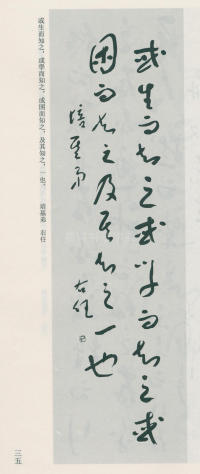 或生而知之或學而知之或
困而知之及其知之一也
培基弟
右任
或生而知之，或學而知之，或困而知之，及其知之，一也。 培基弟 右任
三五